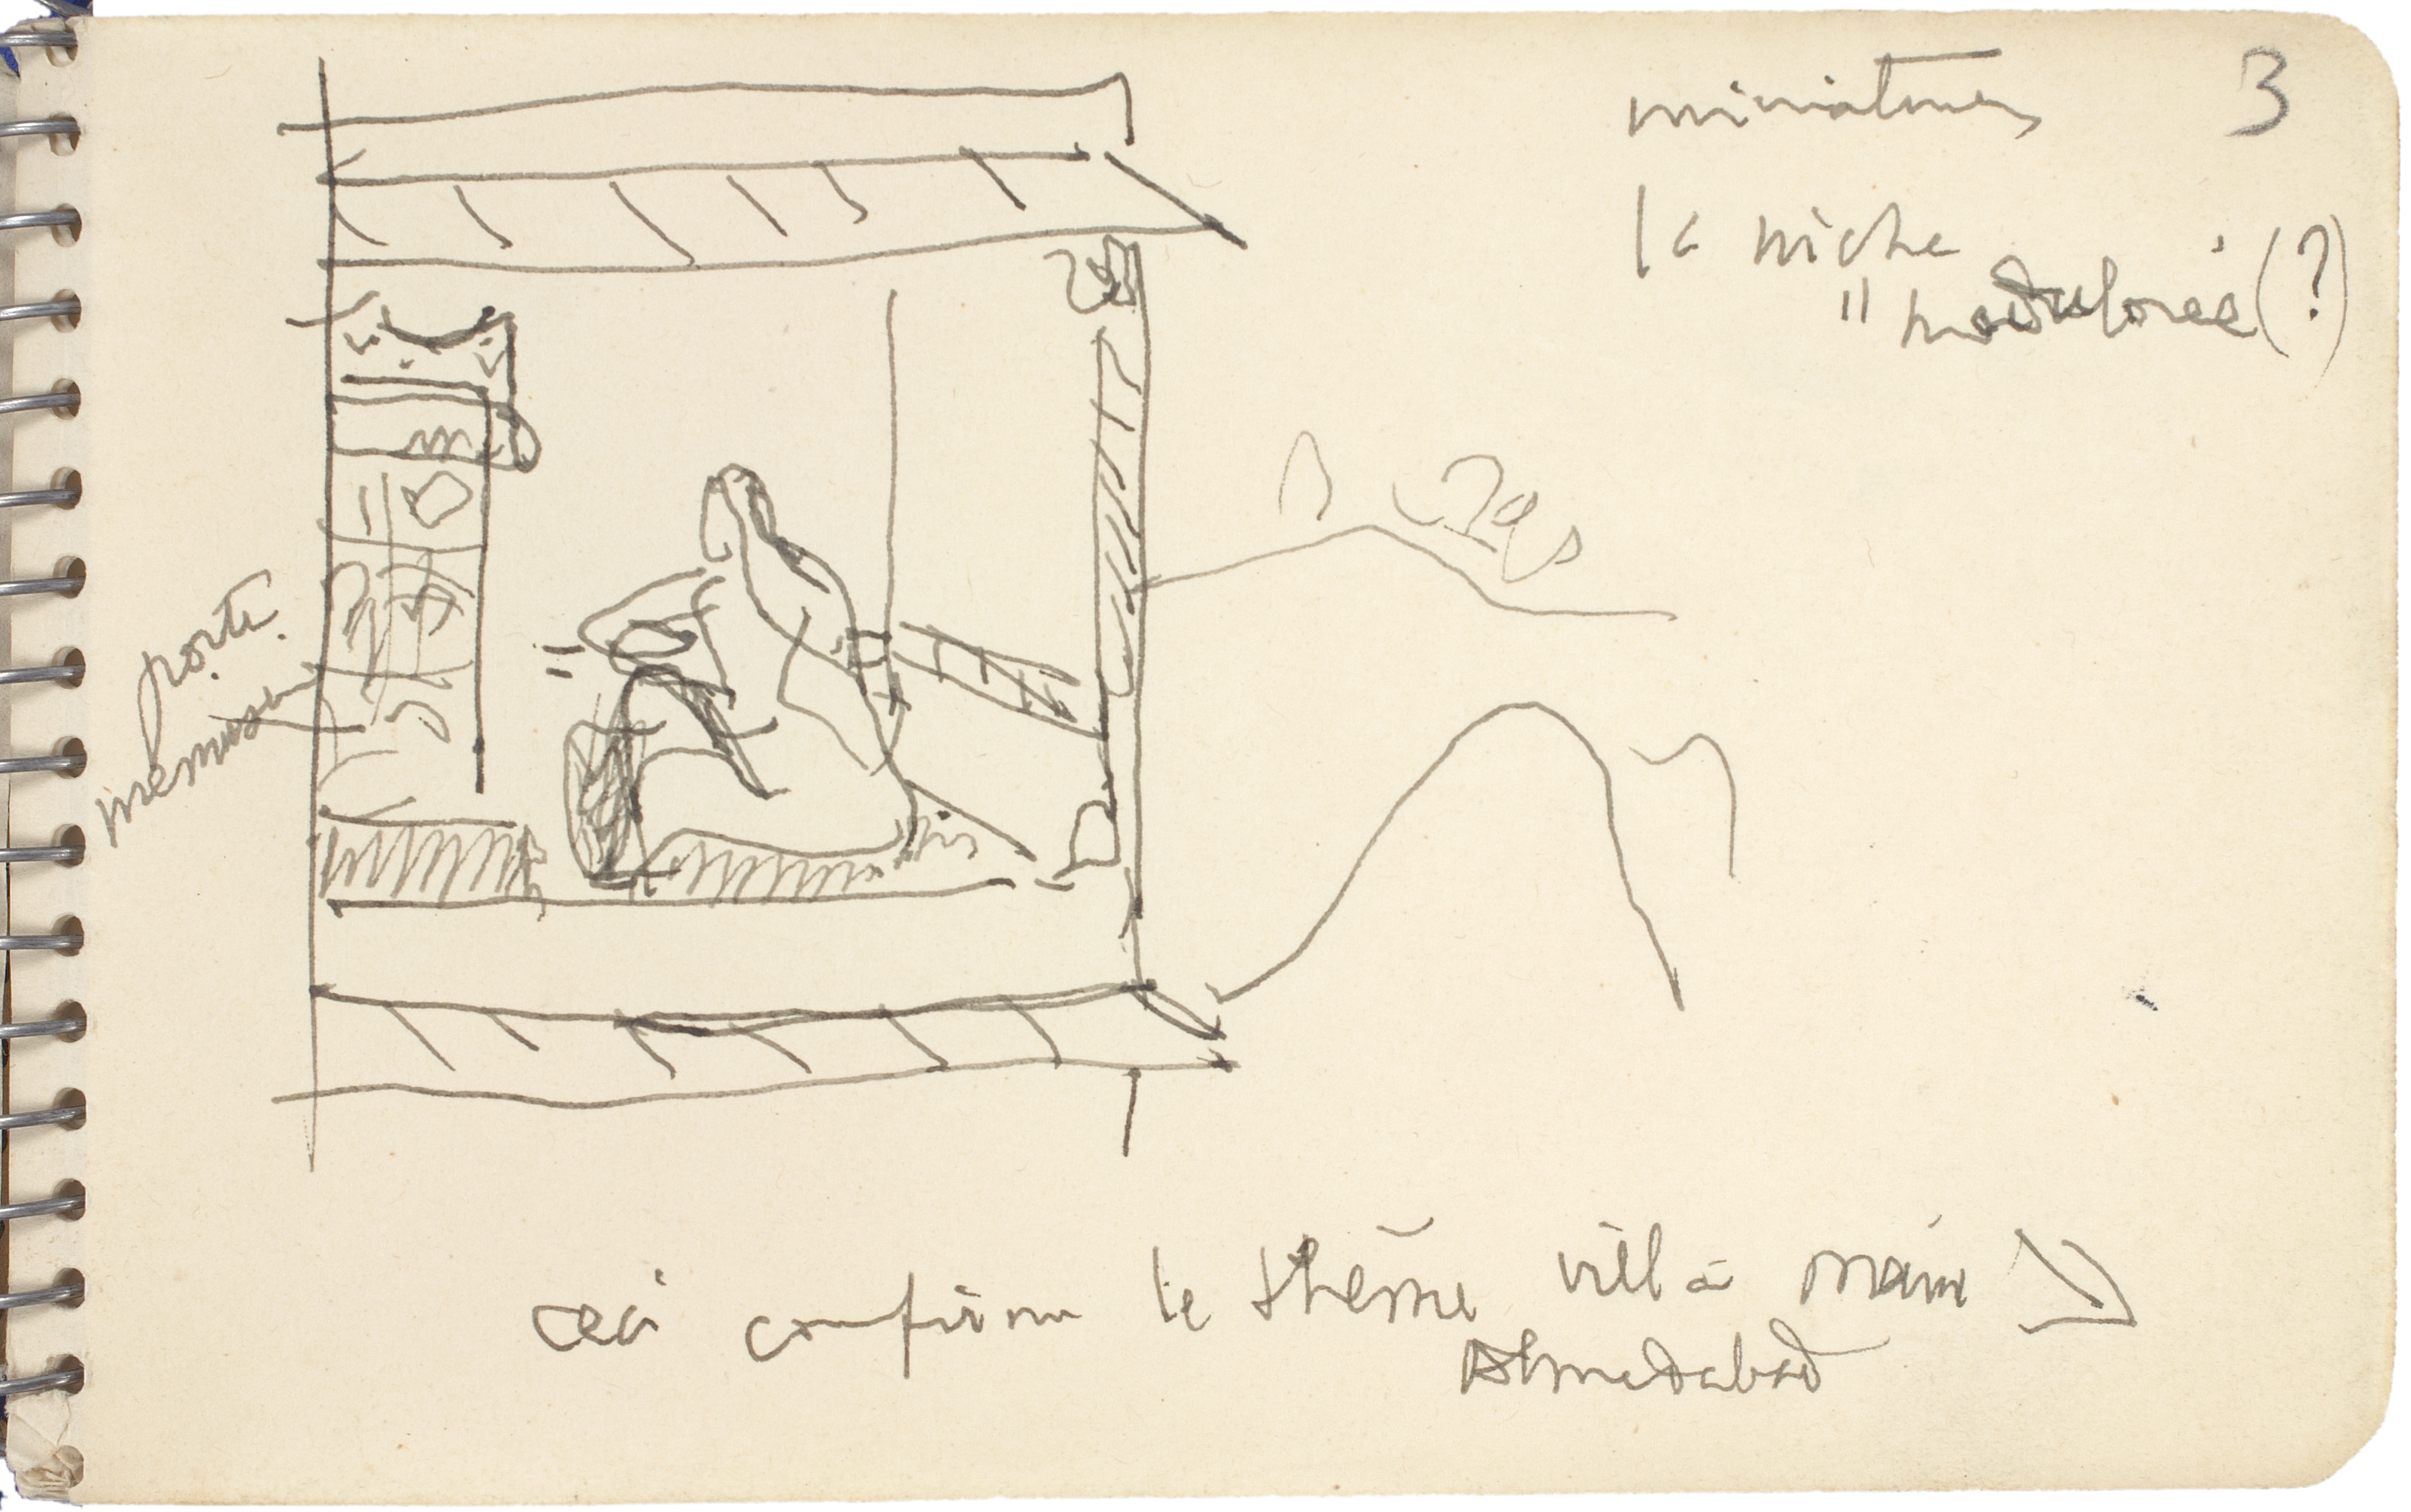 miniatures 3
la niche
" modulorée (?)
porte
menuiserie
ceci confirme le thème villa maire
Ahmedabad